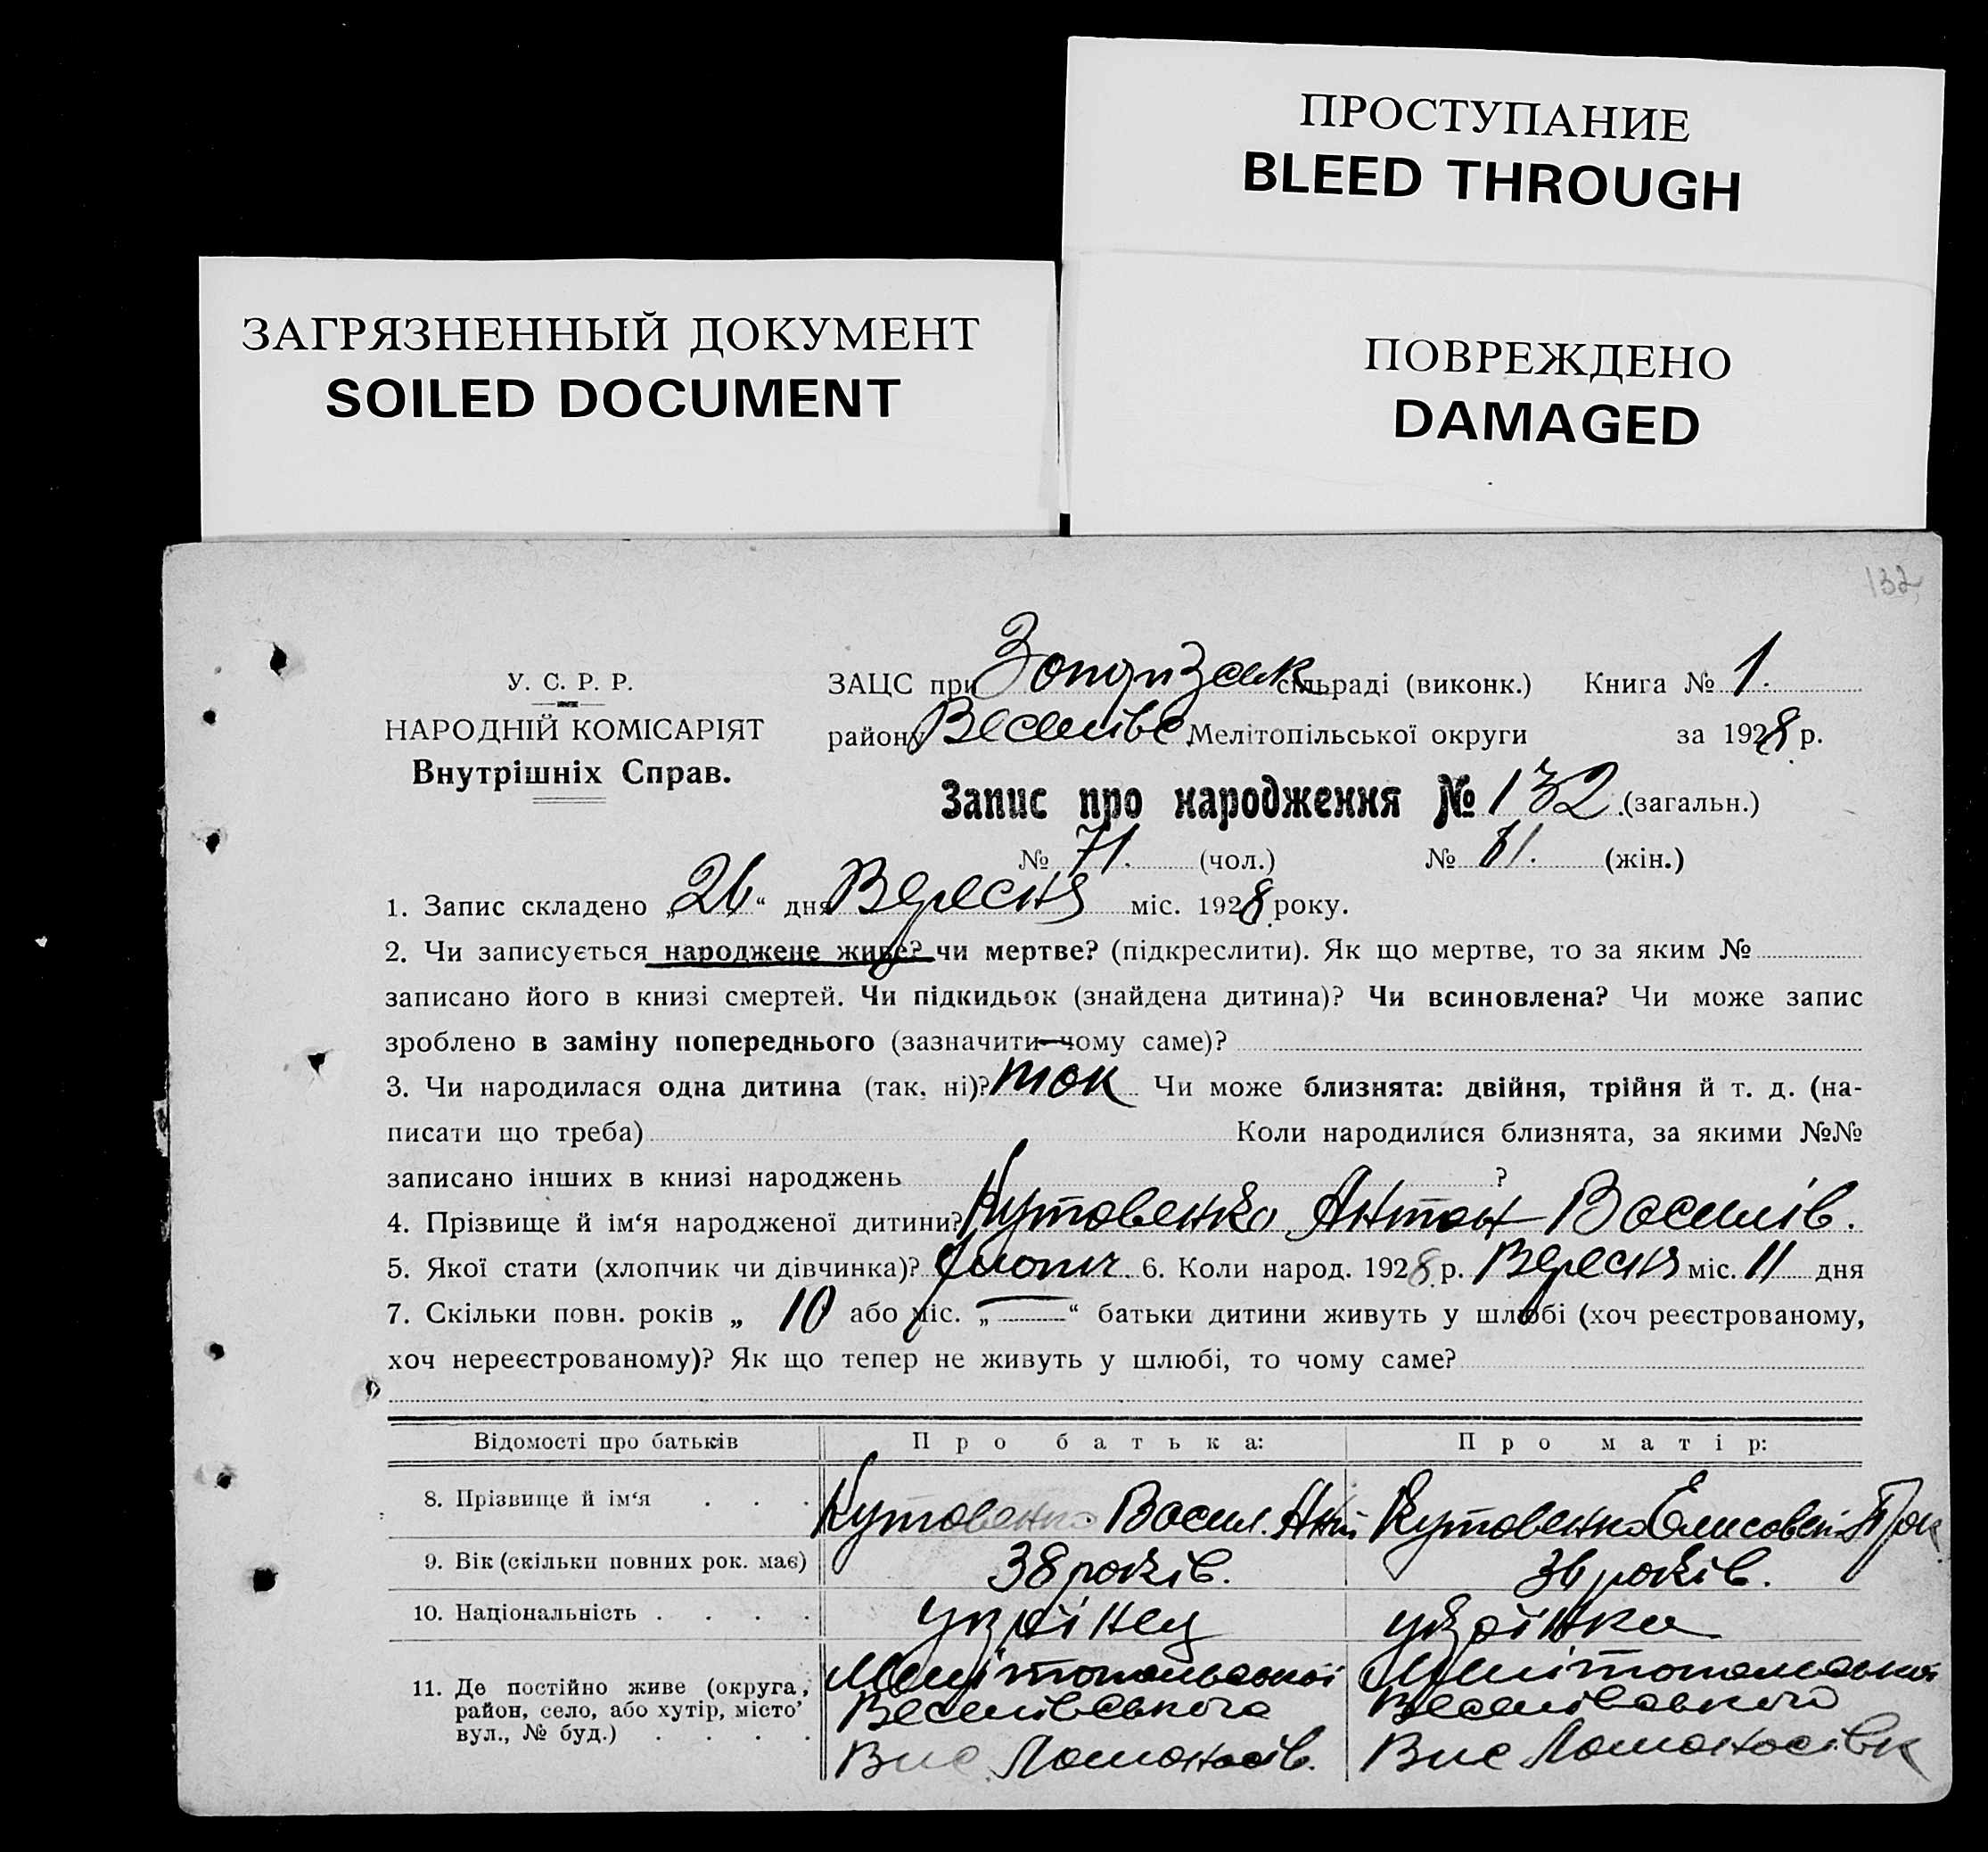 ПРОСТУПАНИЕ
BLEED THROUGH
ЗАГРЯЗНЕННЫЙ ДОКУМЕНТ
SOILED DOCUMENT
ПОВРЕЖДЕНО
DAMAGED
132
У. С. Р. Р.
НАРОДНІЙ КОМІСАРІЯТ
Внутрішніх Справ.
ЗАЦС при сільраді (виконк.) Книга № 1.
району Веселівс Мелітопільської округи за 1928 р.
Запис про народження № 132 (загальн.)
№ 71. (чол.) № 61. (жін.)
1. Запис складено „26“ дня Вересня міс. 1928 року.
2. Чи записується народжене живе? чи мертве? (підкреслити). Як що мертве, то за яким №
записано його в книзі смертей. Чи підкидьок (знайдена дитина)? Чи всиновлена? Чи може запис
зроблено в заміну попереднього (зазначити чому саме)?
3. Чи народилася одна дитина (так, ні)? так Чи може близнята: двійня, трійня й т. д. (на-
писати що треба) Коли народилися близнята, за якими №№
записано інших в книзі народжень ?
4. Прізвище й ім‘я народженої дитини? Кутовенко Антон Василів.
5. Якої стати (хлопчик чи дівчинка)? Хлопч. 6. Коли народ. 1928 р. Вересня міс. 11 дня
7. Скільки повн. років „ 10 або міс. „—“ батьки дитини живуть у шлюбі (хоч реєстрованому,
хоч нереєстрованому)? Як що тепер не живуть у шлюбі, то чому саме?
Відомості про батьків Про батька: Про матір:
8. Прізвище й ім‘я . . . Кутовенко Васил. Ант Кутовенко Єлисовет Прок
9. Вік (скільки повних рок. має) 38 років. 36 років.
10. Національність . . . . українец українка
11. Де постійно живе (округа, район, село, або хутір, місто, вул., № буд.) . . . .
Мелітопольської Мелітопольської
Веселівського Веселівського
Вис. Ломоносів. Вис Ломоносівк